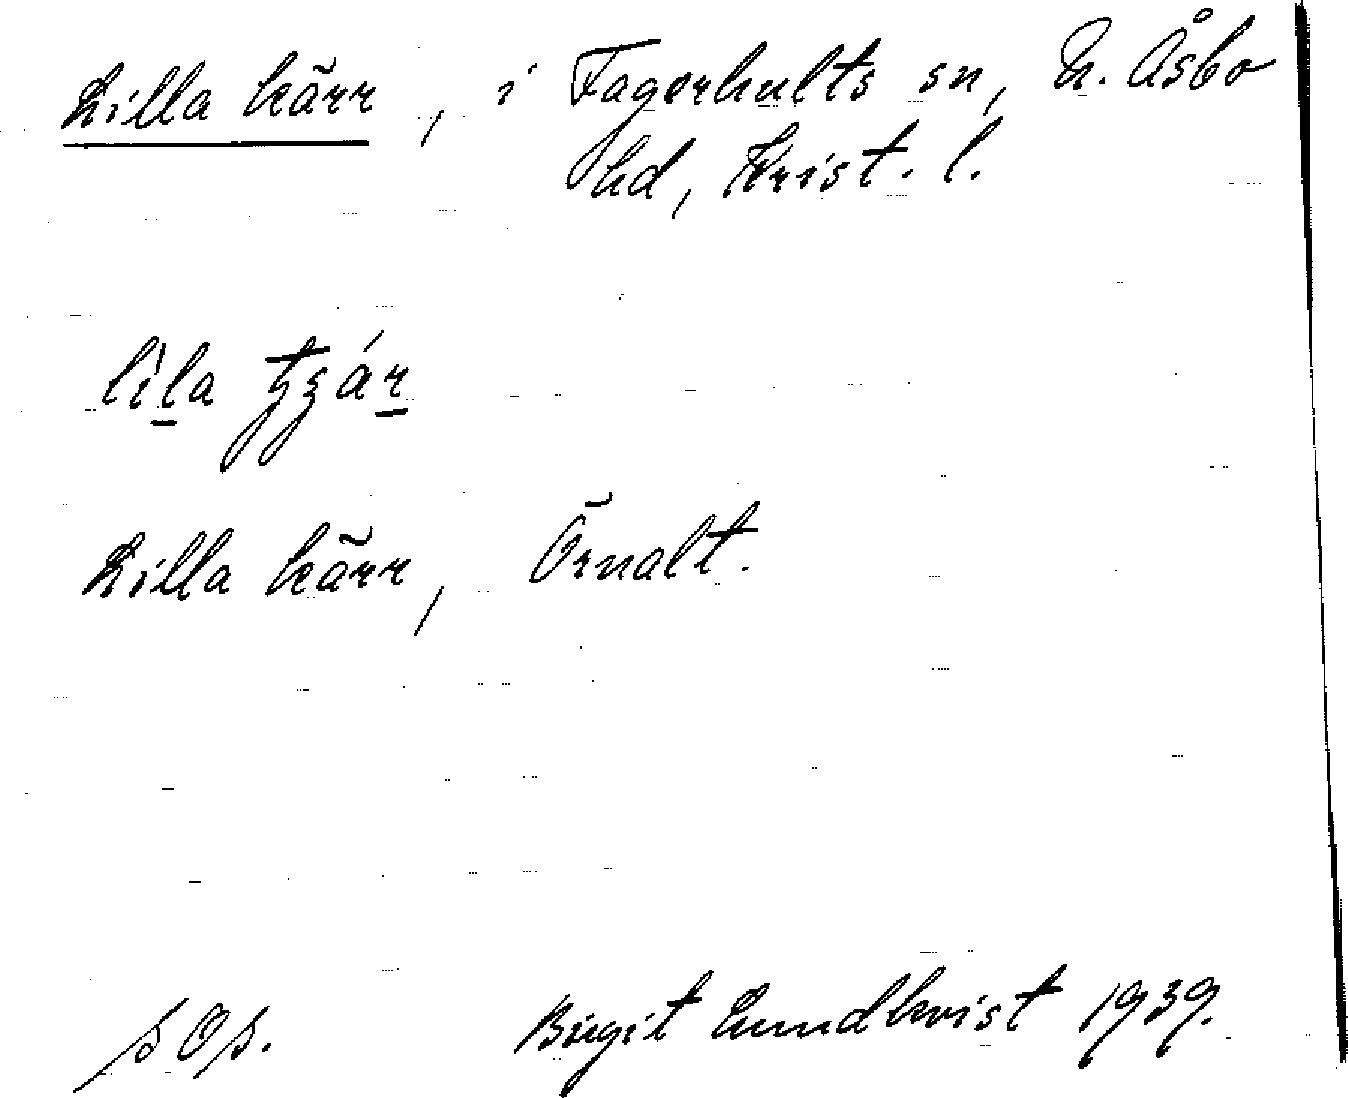 Lilla kärr, i Fagerhults sn, N. Åsbo
hd, Krist. l.
Lilla kärr, Örnalt.
Birgit Lundkvist 1939.